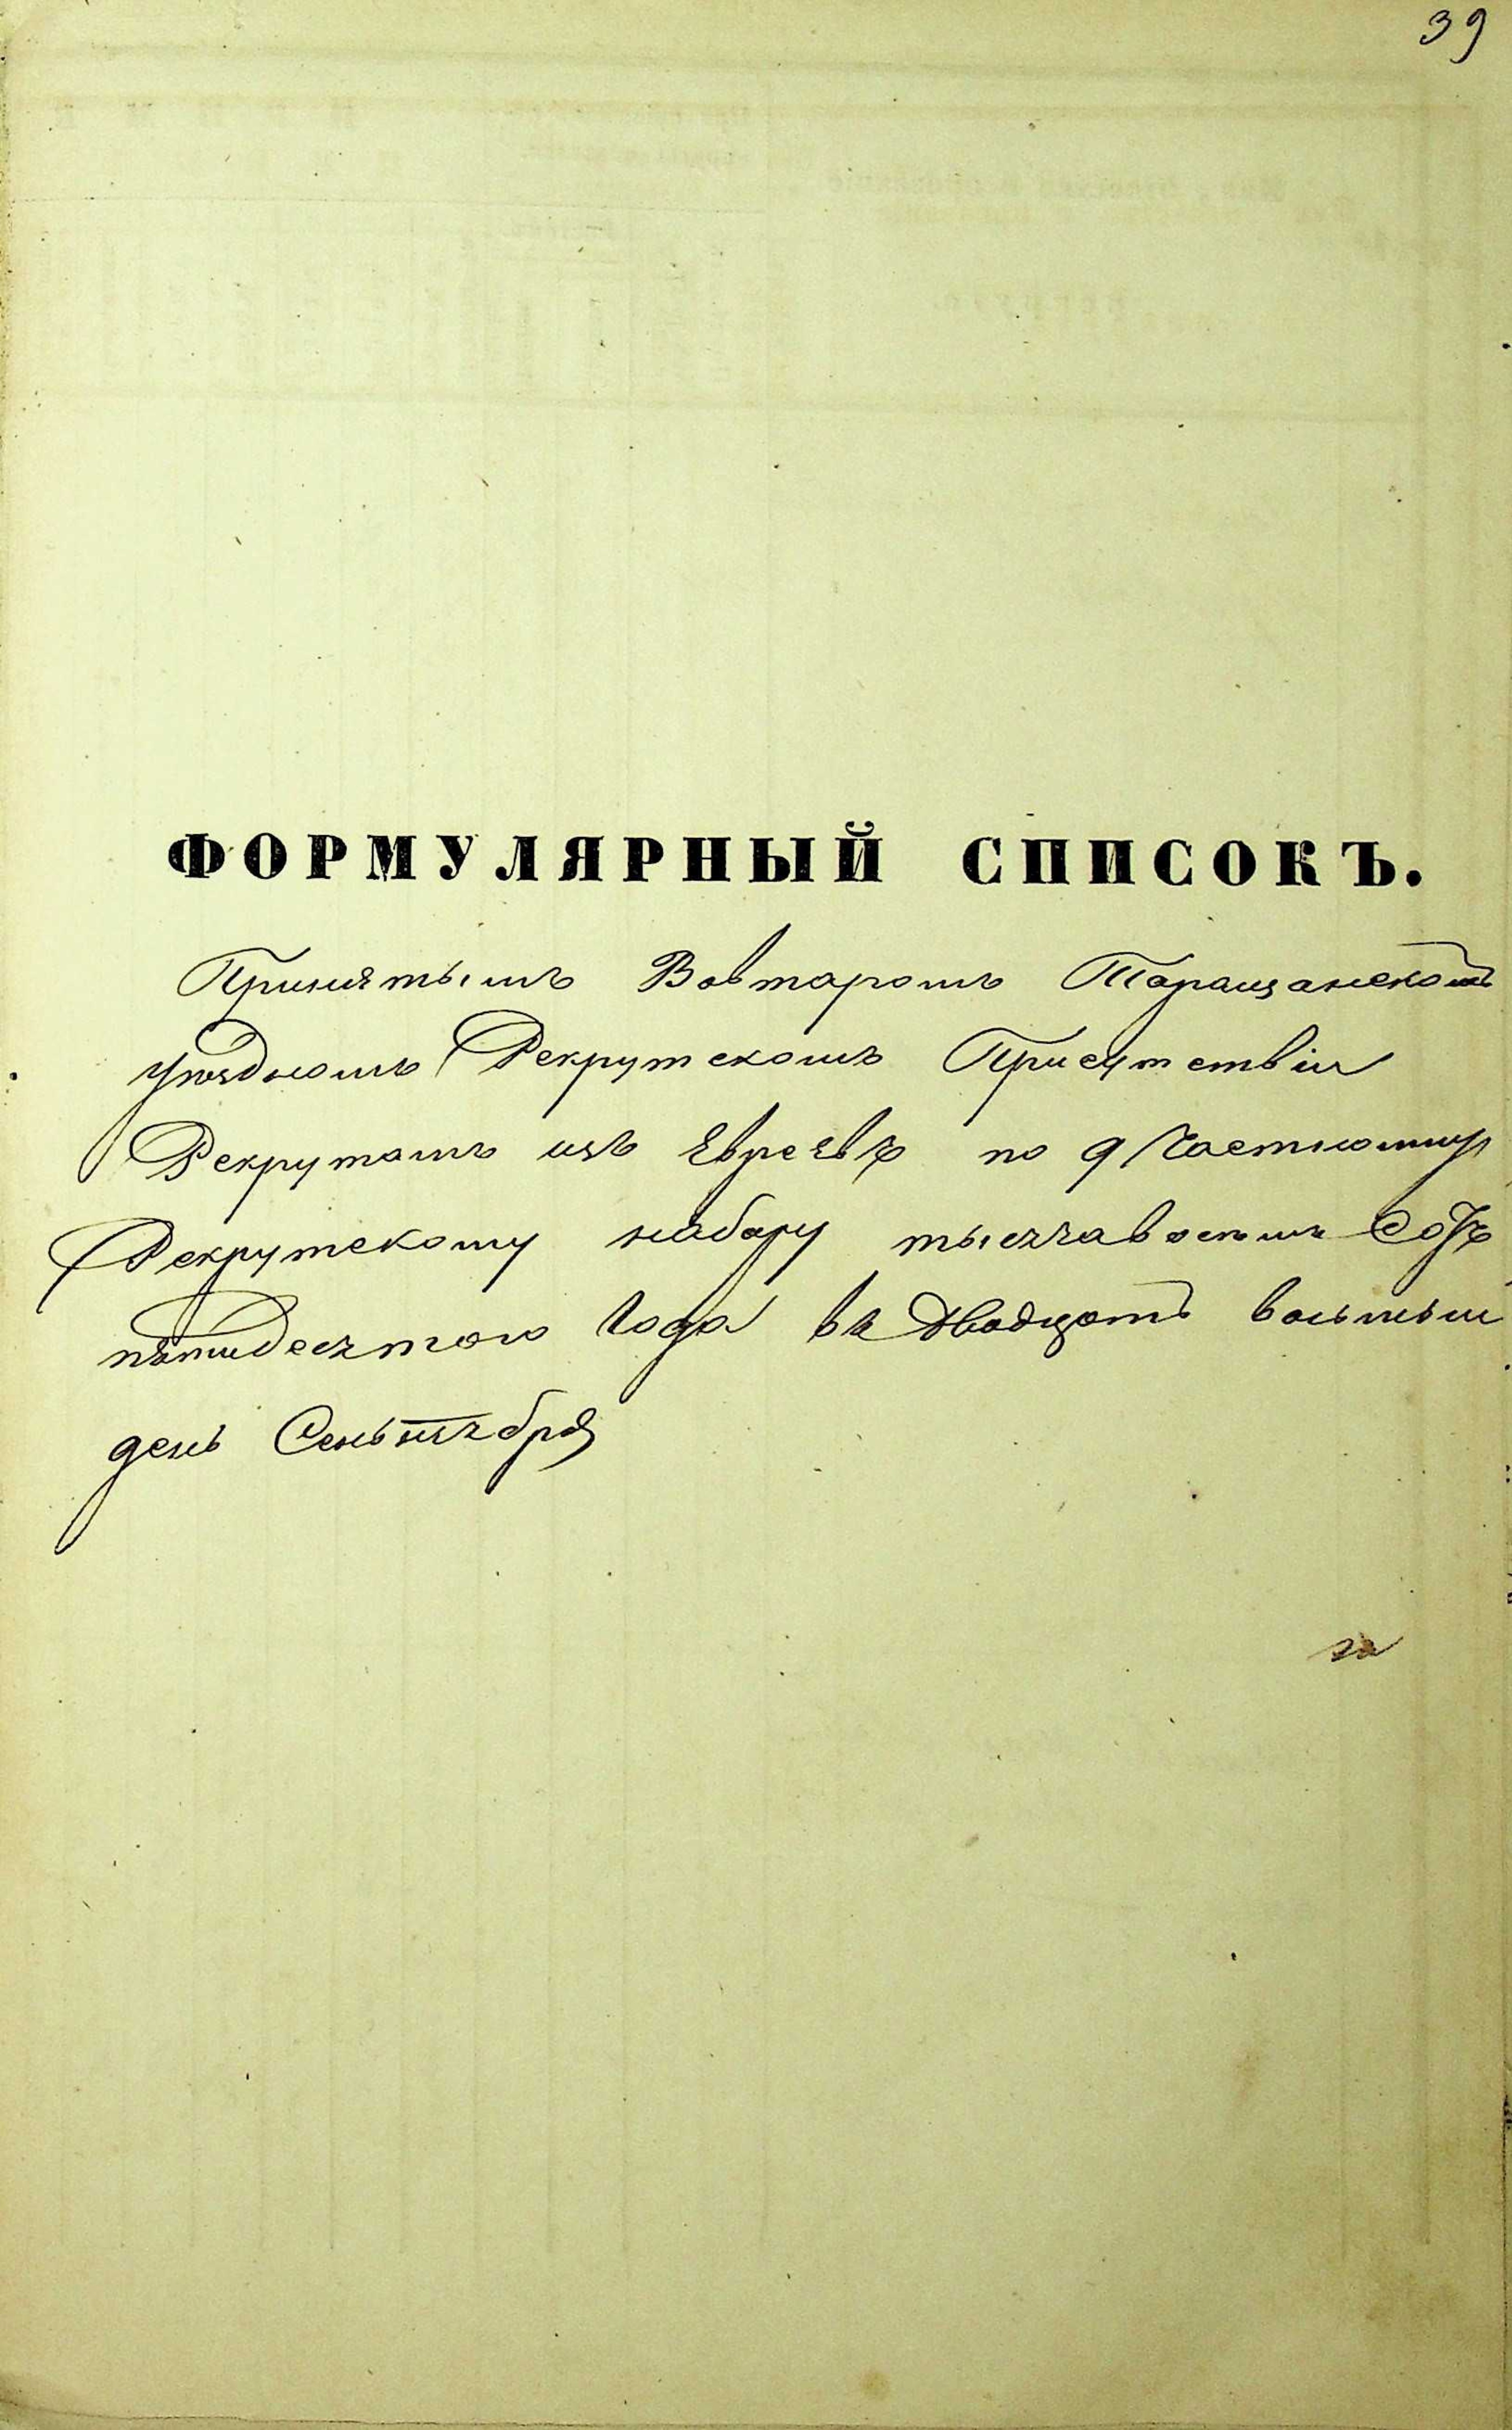 39
ФОРМУЛЯРНЫЙ СПИСОКЪ.
Принятымъ Вовтаромъ Таращанскомъ
уѣздномъ Рекрутскомъ Присутствіи
Рекрутамъ изъ Евреевъ по 9 Частному
Рекрутскому набору тысяча восемь Сотъ
пятидесятого Года въ Двадцать восьмый
день Сеньтября
за